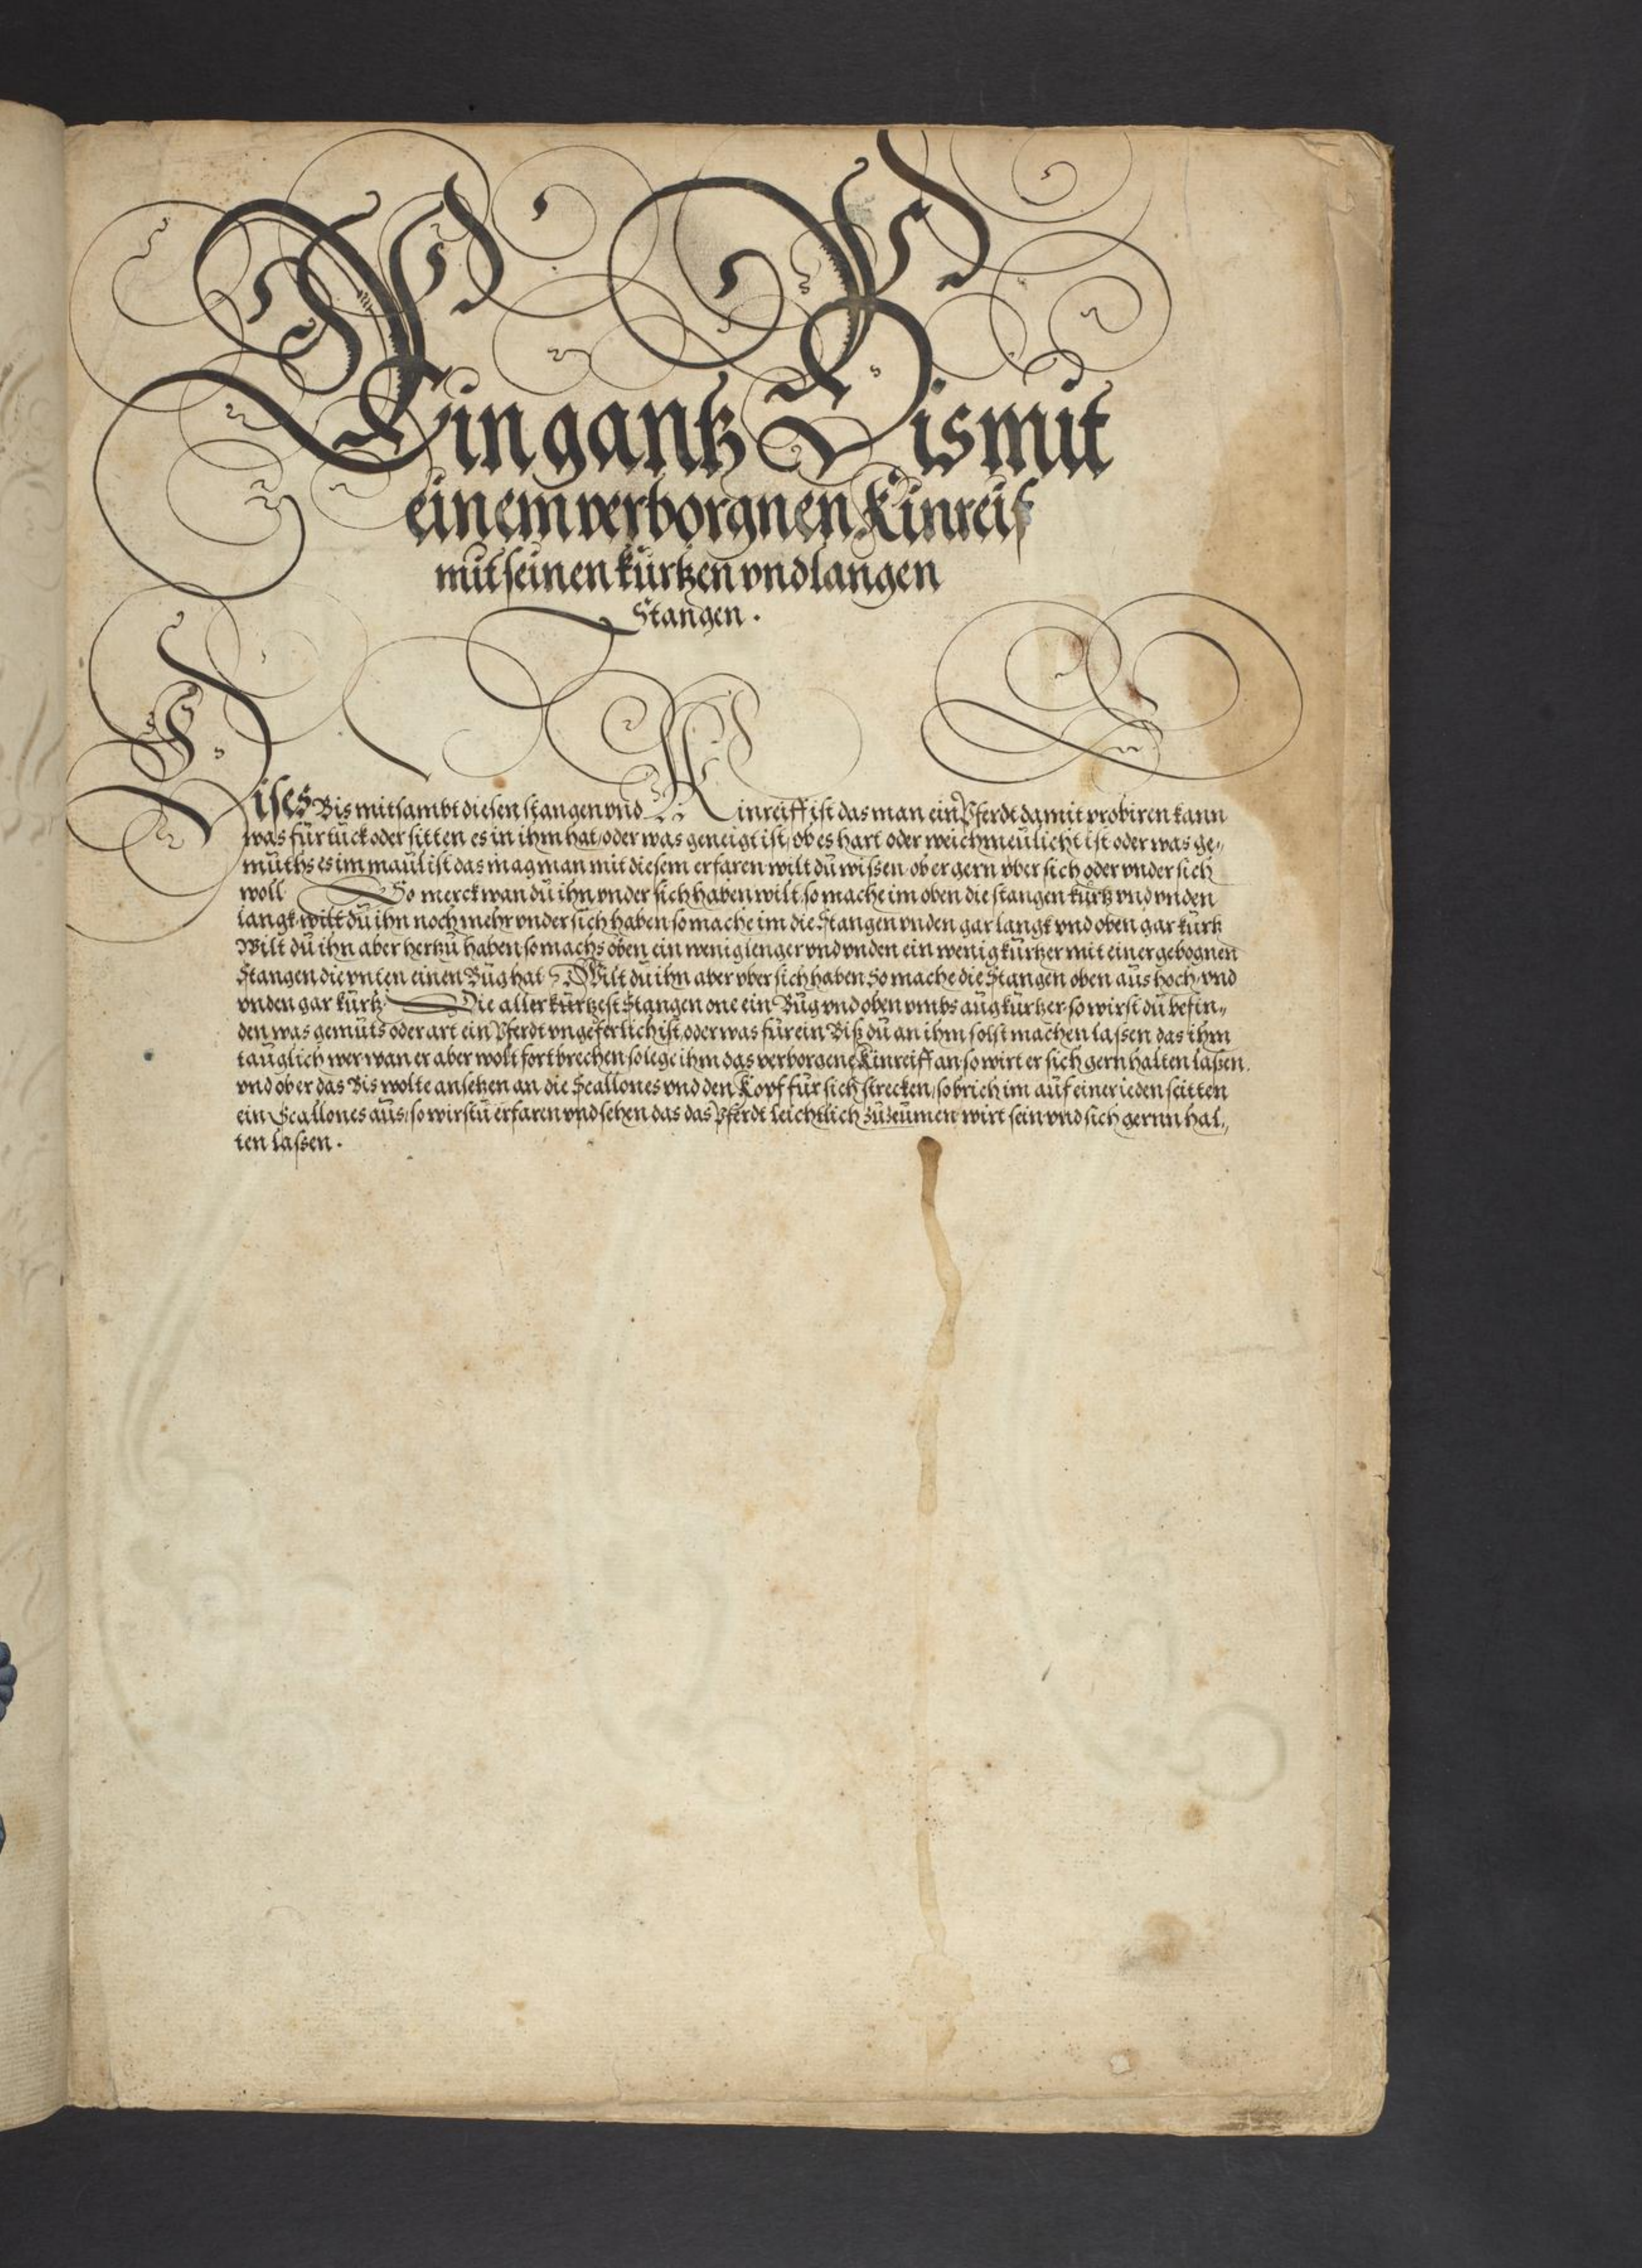 Ein gantz Bis mit
einem verborgnen Kinreif
mit seinen kürtzen vnd langen
Stangen.
Dises Bis mitsambt diesen stangen vnd Kinreiff ist das man ein Pferdt damit probiren kann
was für tück oder sitten es in ihm hat, oder was geneigt ist, ob es hart oder weichmeülicht ist oder was ge„
müths es im maül ist das mag man mit diesem erfaren wilt dü wissen ob er gern vber sich oder vnder sich
woll So merck wan dü ihn vnder sich haben wilt so mache im oben die stangen kürtz vnd vnden
langk wilt dü ihn noch mehr vnder sich haben so mache im die Stangen vnden gar langk vnd oben gar kürtz
Wilt dü ihn aber hertzü haben so machs oben ein wenig lenger vnd vnden ein wenig kürtzer mit einer gebognen
Stangen die vnten einen Büg hat Wilt dü ihn aber vber sich haben So mache die Stangen oben aüs hoch vnd
vnden gar kürtz Die aller kürtzest Stangen one ein Büg vnd oben vmbs aüg kürtzer so wirst dü befin„
den was gemüts oder art ein Pferdt vngeferlich ist, oder was für ein Biß dü an ihm solst machen lassen das ihm
taüglich wer wan er aber wolt fortbrechen so lege ihm das verborgene Kinreiff an so wirt er sich gern halten laßen.
vnd ob er das Bis wolte ansetzen an die Scallones vnd den Kopf für sich strecken, so brich im aüf einer ieden seitten
ein Scallones aüs, so wirstü erfaren vnd sehen das das Pferdt leichtlich züzeümen wirt sein vnd sich gernn hal„
ten lassen.